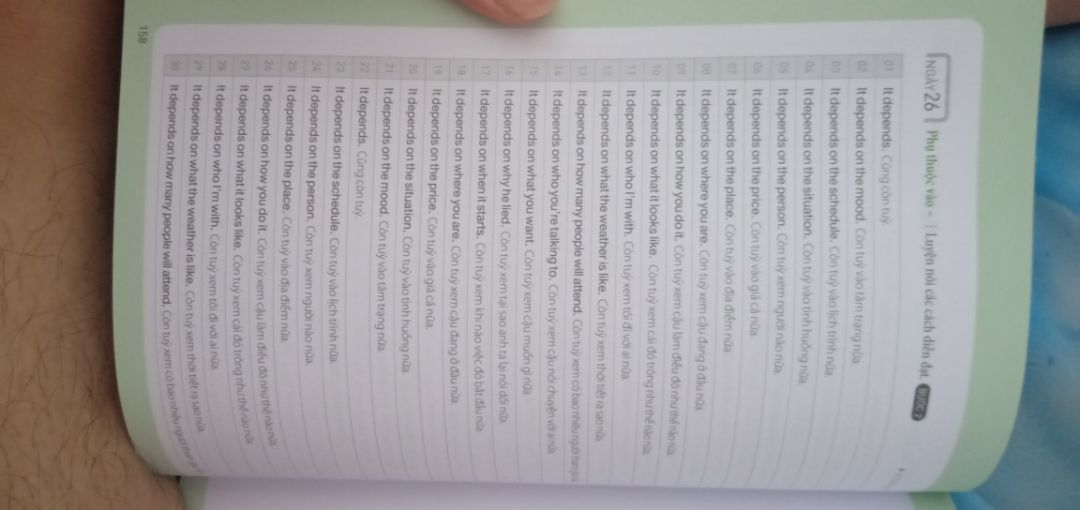 NGÀY 26 Phụ thuộc vào ~ : Luyện nói các cách diễn đạt
01 It depends. Cũng còn tuỳ.
02 It depends on the mood. Còn tuỳ vào tâm trạng nữa.
03 It depends on the schedule. Còn tuỳ vào lịch trình nữa.
04 It depends on the situation. Còn tuỳ vào tình huống nữa.
05 It depends on the person. Còn tuỳ xem người nào nữa.
06 It depends on the price. Còn tuỳ vào giá cả nữa.
07 It depends on the place. Còn tuỳ vào địa điểm nữa.
08 It depends on where you are. Còn tuỳ xem cậu đang ở đâu nữa.
09 It depends on how you do it. Còn tuỳ xem cậu làm điều đó như thế nào nữa.
10 It depends on what it looks like. Còn tuỳ xem cái đó trông như thế nào nữa.
11 It depends on who I'm with. Còn tuỳ xem tôi đi với ai nữa.
12 It depends on what the weather is like. Còn tuỳ xem thời tiết ra sao nữa.
13 It depends on how many people will attend. Còn tuỳ xem có bao nhiêu người
14 It depends on who you're talking to. Còn tuỳ xem cậu nói chuyện với ai nữa.
15 It depends on what you want. Còn tuỳ xem cậu muốn gì nữa.
16 It depends on why he lied. Còn tuỳ xem tại sao anh ta lại nói dối nữa.
17 It depends on when it starts. Còn tuỳ xem khi nào việc đó bắt đầu nữa.
18 It depends on where you are. Còn tuỳ xem cậu đang ở đâu nữa.
19 It depends on the price. Còn tuỳ vào giá cả nữa.
20 It depends on the situation. Còn tuỳ vào tình huống nữa.
21 It depends on the mood. Còn tuỳ vào tâm trạng nữa.
22 It depends. Cũng còn tuỳ.
23 It depends on the schedule. Còn tuỳ vào lịch trình nữa.
24 It depends on the person. Còn tuỳ xem người nào nữa.
25 It depends on the place. Còn tuỳ vào địa điểm nữa.
26 It depends on how you do it. Còn tuỳ xem cậu làm điều đó như thế nào nữa.
27 It depends on what it looks like. Còn tuỳ xem cái đó trông như thế nào nữa.
28 It depends on who I'm with. Còn tuỳ xem tôi đi với ai nữa.
29 It depends on what the weather is like. Còn tuỳ xem thời tiết ra sao nữa.
30 It depends on how many people will attend. Còn tuỳ xem có bao nhiêu người
158